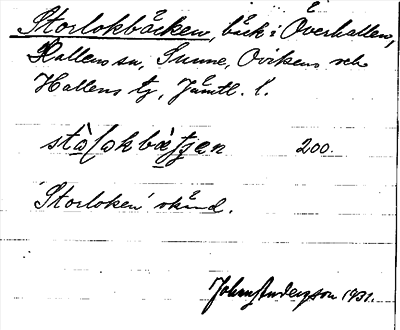 Storlokbäcken, bäck i Överhallen,
Hallens sn, Sunne, Ovikens och
Hallens tg, Jämtl. l.
200.
'Storloken' okänd.
John Andersson 1931.